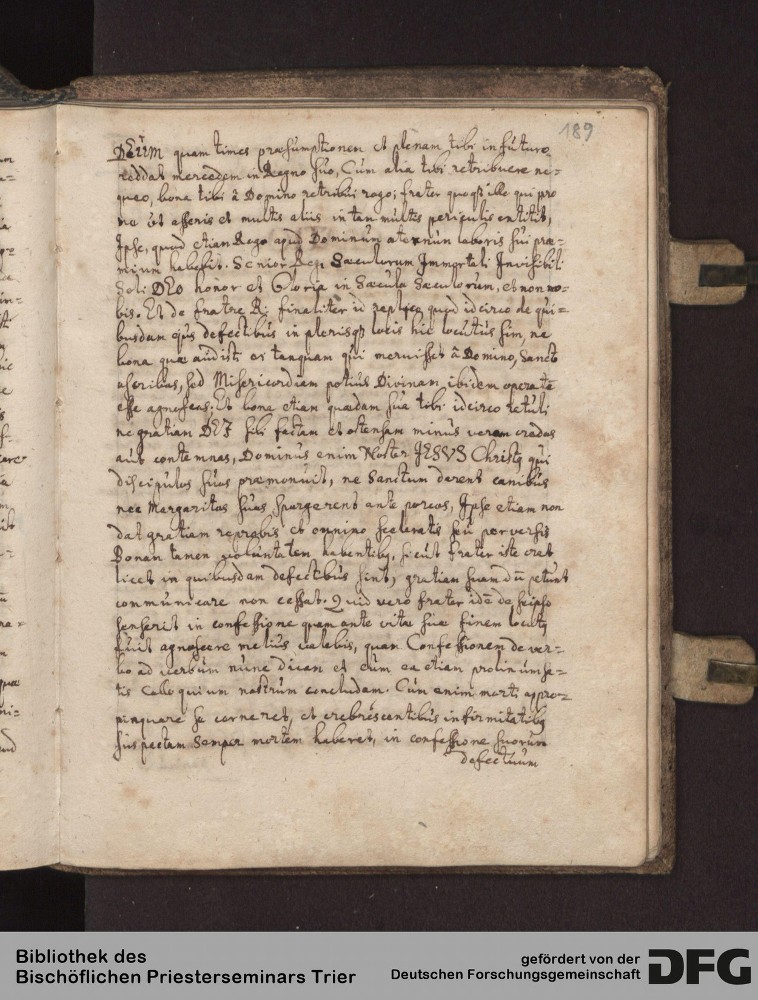 189
DEUM quam times præsumptionem et plenam tibi in futuro
reddat mercedem in Regno suo, Cùm alia tibi retribuere ne-
queo, bona tibi â Domino retribui rogo; frater quoqꝫ ille qui pro
me ut asseris et multis aliis in tan multis periculis extitit,
Ipse, quod etian Rogo apud Dominùm æternùm laboris sui præ-
mium habebit. Senior Regi Sæculorum Immortali Invisibili
Soli DEO honor et Gloria in Sæcula Sæculorum, et non no-
bis. Et de fratre R; finaliter id replico quod idcirco de qui-
busdam ejus defectibus in plerisqꝫ locis hic locutus sim, ne
bona quæ audisti ei tanquam qui meruisset â Domino, Sanct
asscribas, sed Misericordiam potius Divinam ibidem operatā
esse agnoscas; Et bona etiam quædam sua tibi idcirco retuli
ne gratian DEI sibi factam et ostensam minus veram credas
aut contemnas, Dominùs enim Noster JESUS Christꝰ qui
discipulos suos præmonuit, ne Sanctum darent canibus
nec Margaritas suas spargerent ante porcos, Ipse etiam non
dat gratiam reprobis et omnino sceleratis seù perversis
Bonam tamen voluntatem habentibꝰ, sicut frater iste erat
licet in quibusdam defectibùs sint, gratiam suam dū petunt
communicare non cessat. Quid verò frater idē de seipso
senserit in confessione quam ante vitæ suæ finem locutꝰ
fuit agnoscere melius valebis, quam Confessionem de ver-
bo ad verbùm nùnc dican et cùm ea etiam prolixùm sa-
tis Colloquium nostrùm concludam. Cùm enim morti appro-
pinquare se cerneret, et crebrescentibùs infirmitatibꝰ
suspectam semper mortem haberet, in confessione suorùm
defectuum
Bibliothek des
Bischöflichen Priesterseminars Trier
gefördert von der
Deutschen Forschungsgemeinschaft
DFG